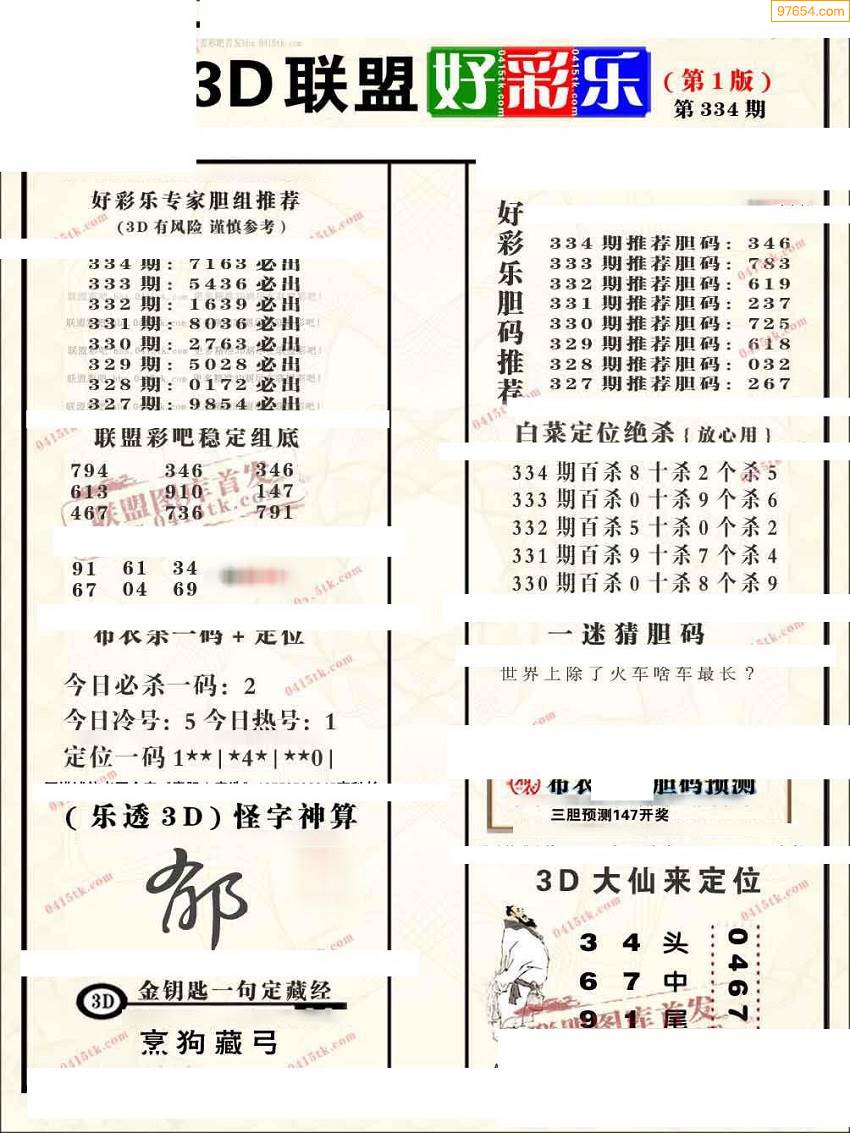 97654.com
3D联盟好彩乐
(第1版)
第334期
好彩乐专家胆组推荐
(3D有风险 谨慎参考)
334期:7163必出
333期:5436必出
332期:1639必出
331期:8036必出
330期:2763必出
329期:5028必出
328期:0172必出
327期:9854必出
联盟彩吧稳定组底
794 346 346
613 910 147
467 736 791
91 61 34
67 04 69
布衣杀一码+定位
今日必杀一码:2
今日冷号:5 今日热号:1
定位一码1**|*4*|**0|
(乐透3D)怪字神算
3D 金钥匙一句定藏经
烹狗藏弓
好彩乐胆码推荐
334期推荐胆码:346
333期推荐胆码:783
332期推荐胆码:619
331期推荐胆码:237
330期推荐胆码:725
329期推荐胆码:618
328期推荐胆码:032
327期推荐胆码:267
白菜定位绝杀{放心用}
334期百杀8十杀2个杀5
333期百杀0十杀9个杀6
332期百杀5十杀0个杀2
331期百杀9十杀7个杀4
330期百杀0十杀8个杀9
一迷猜胆码
世界上除了火车啥车最长?
布衣 胆码预测
三胆预测147开奖
3D大仙来定位
3 4 头
6 7 中
9 1 尾
0467
联盟图库首发
0415tk.com